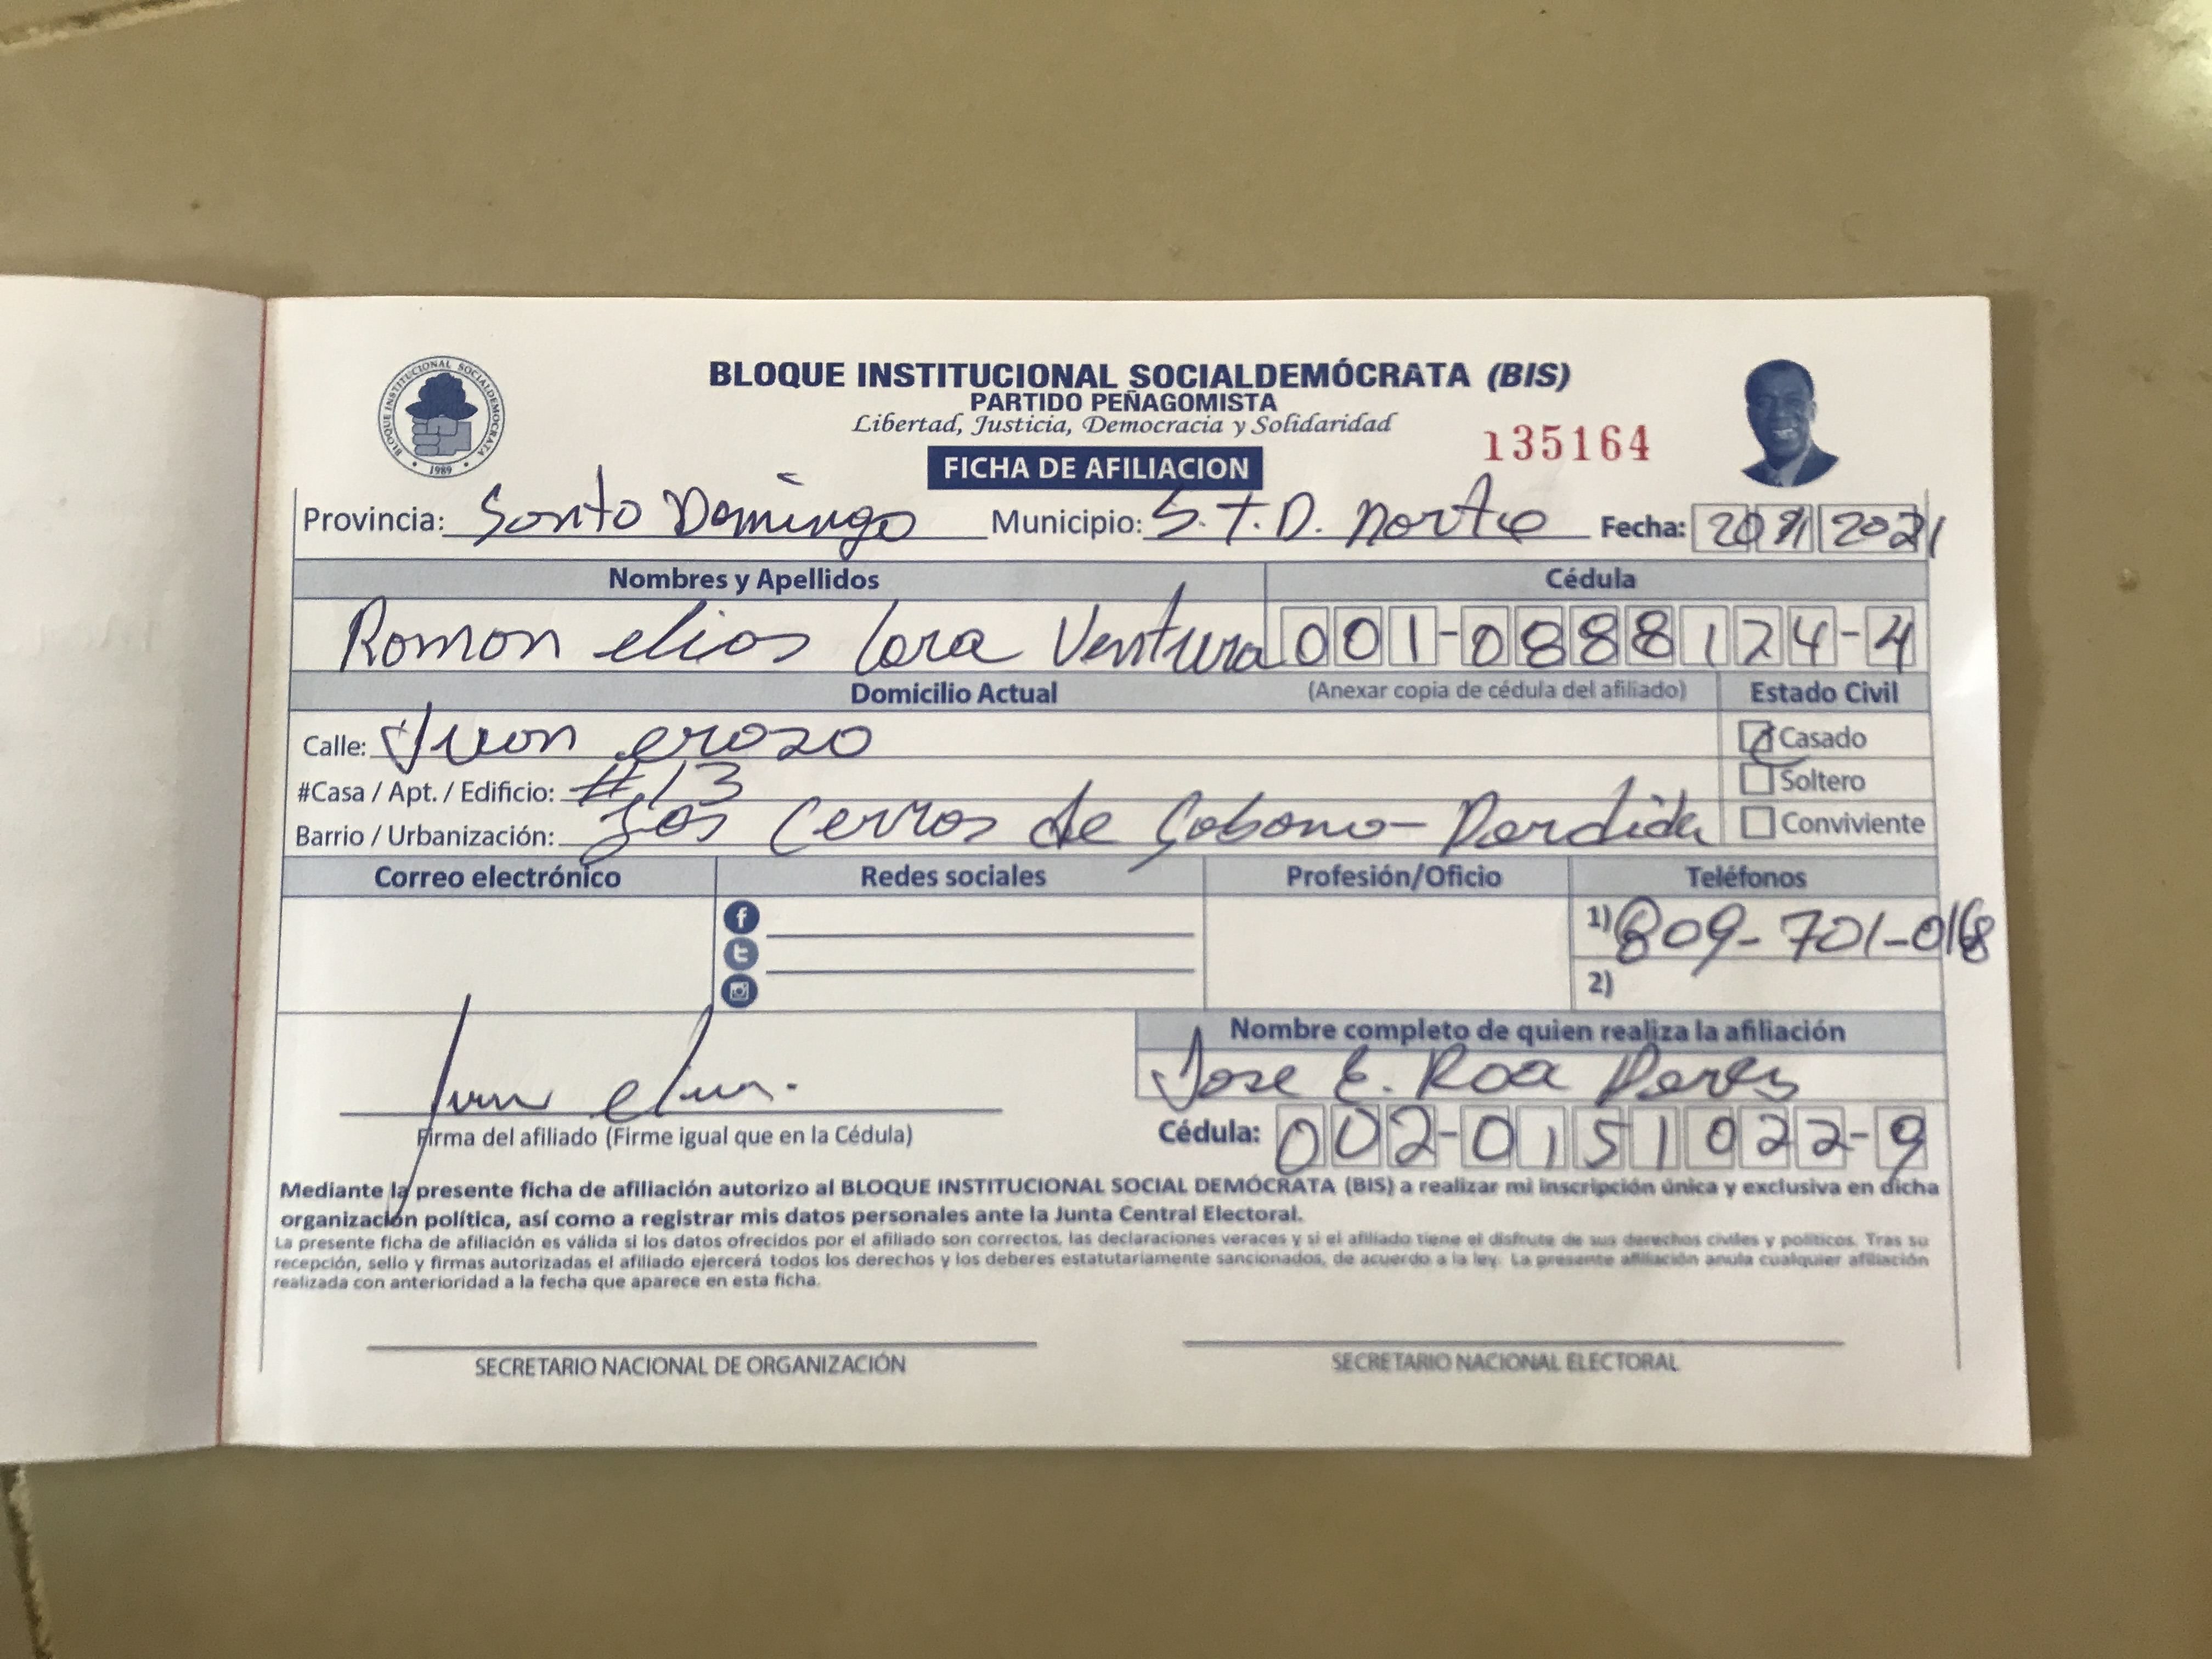 BLOQUE INSTITUCIONAL SOCIALDEMOCRATA
1989
BLOQUE INSTITUCIONAL SOCIALDEMÓCRATA (BIS)
PARTIDO PEÑAGOMISTA
Libertad, Justicia, Democracia y Solidaridad
135164
FICHA DE AFILIACION
Provincia: Santo Domingo Municipio: S.T.D. Norte Fecha: 2021
Nombres y Apellidos Cédula
Ramon elias lara Ventura 001-0888124-4
Domicilio Actual (Anexar copia de cédula del afiliado) Estado Civil
Calle: Juan erazo Casado
#Casa / Apt. / Edificio: #13 Soltero
Barrio / Urbanización: Los Cerros de Sabana-Perdida Conviviente
Correo electrónico Redes sociales Profesión/Oficio Teléfonos
1) 809-701-0168
2)
Nombre completo de quien realiza la afiliación
Jose E. Roa
Firma del afiliado (Firme igual que en la Cédula) Cédula: 002-0151022-9
Mediante la presente ficha de afiliación autorizo al BLOQUE INSTITUCIONAL SOCIAL DEMÓCRATA (BIS) a realizar mi inscripción única y exclusiva en dicha
organización política, así como a registrar mis datos personales ante la Junta Central Electoral.
La presente ficha de afiliación es válida si los datos ofrecidos por el afiliado son correctos, las declaraciones veraces y si el afiliado tiene el disfrute de sus derechos civiles y políticos. Tras su
recepción, sello y firmas autorizadas el afiliado ejercerá todos los derechos y los deberes estatutariamente sancionados, de acuerdo a la ley. La presente afiliación anula cualquier afiliación
realizada con anterioridad a la fecha que aparece en esta ficha.
SECRETARIO NACIONAL DE ORGANIZACIÓN SECRETARIO NACIONAL ELECTORAL